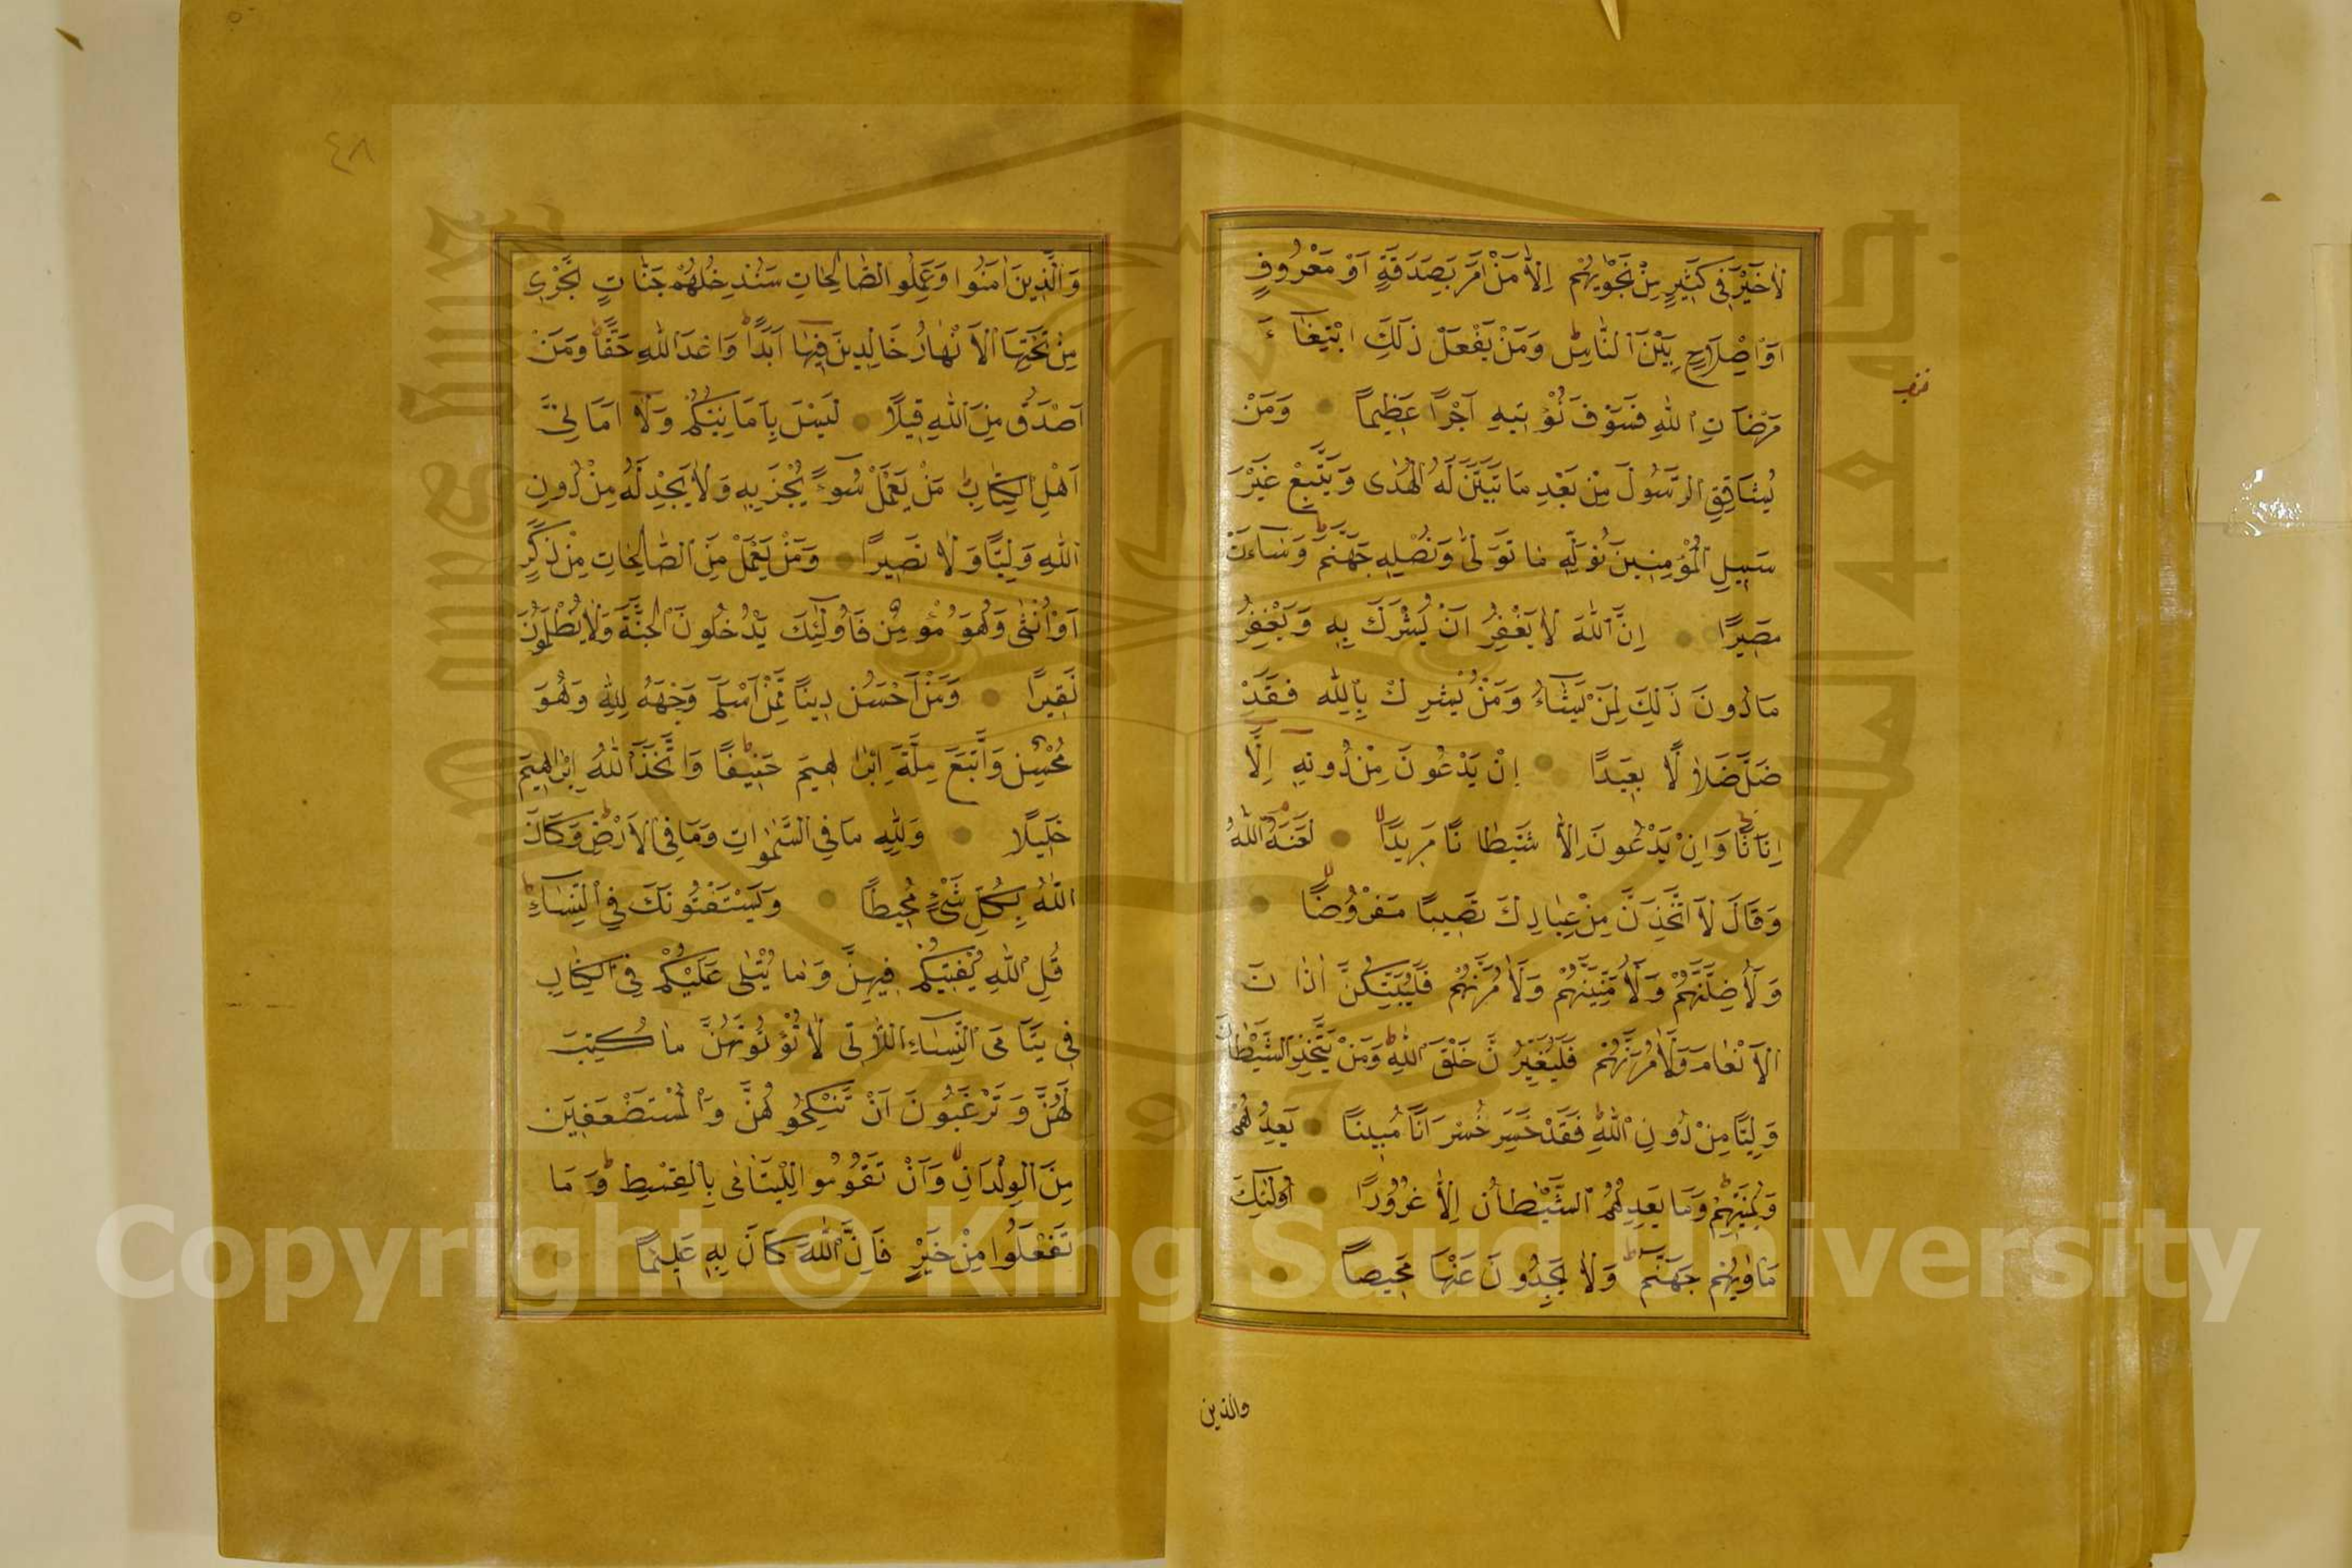 لَا خَيْرَ فِي كَثِيرٍ مِنْ نَجْوٰيهُمْ اِلَّا مَنْ اَمَرَ بِصَدَقَةٍ اَوْ مَعْرُوفٍ
اَوْ اِصْلَاحٍ بَيْنَ النَّاسِ وَمَنْ يَفْعَلْ ذٰلِكَ ابْتِغَاءَ
مَرْضَاتِ اللهِ فَسَوْفَ نُؤْتِيهِ اَجْرًا عَظِيمًا وَمَنْ
يُشَاقِقِ الرَّسُولَ مِنْ بَعْدِ مَا تَبَيَّنَ لَهُ الْهُدٰى وَيَتَّبِعْ غَيْرَ
سَبِيلِ الْمُؤْمِنِينَ نُوَلِّهِ مَا تَوَلّٰى وَنُصْلِهِ جَهَنَّمَ وَسَاءَتْ
مَصِيرًا اِنَّ اللهَ لَا يَغْفِرُ اَنْ يُشْرَكَ بِهِ وَيَغْفِرُ
مَا دُونَ ذٰلِكَ لِمَنْ يَشَاءُ وَمَنْ يُشْرِكْ بِاللهِ فَقَدْ
ضَلَّ ضَلَالًا بَعِيدًا اِنْ يَدْعُونَ مِنْ دُونِهِ اِلَّا
اِنَاثًا وَاِنْ يَدْعُونَ اِلَّا شَيْطَانًا مَرِيدًا لَعَنَهُ اللهُ
وَقَالَ لَاَتَّخِذَنَّ مِنْ عِبَادِكَ نَصِيبًا مَفْرُوضًا
وَلَاُضِلَّنَّهُمْ وَلَاُمَنِّيَنَّهُمْ وَلَاٰمُرَنَّهُمْ فَلَيُبَتِّكُنَّ اٰذَانَ
الْاَنْعَامِ وَلَاٰمُرَنَّهُمْ فَلَيُغَيِّرُنَّ خَلْقَ اللهِ وَمَنْ يَتَّخِذِ الشَّيْطَانَ
وَلِيًّا مِنْ دُونِ اللهِ فَقَدْ خَسِرَ خُسْرَانًا مُبِينًا يَعِدُهُمْ
وَيُمَنِّيهِمْ وَمَا يَعِدُهُمُ الشَّيْطَانُ اِلَّا غُرُورًا اُولٰئِكَ
مَأْوٰيهُمْ جَهَنَّمُ وَلَا يَجِدُونَ عَنْهَا مَحِيصًا
والذين
٤٨
وَالَّذِينَ اٰمَنُوا وَعَمِلُوا الصَّالِحَاتِ سَنُدْخِلُهُمْ جَنَّاتٍ تَجْرِي
مِنْ تَحْتِهَا الْاَنْهَارُ خَالِدِينَ فِيهَا اَبَدًا وَعْدَ اللهِ حَقًّا وَمَنْ
اَصْدَقُ مِنَ اللهِ قِيلًا لَيْسَ بِاَمَانِيِّكُمْ وَلَا اَمَانِيِّ
اَهْلِ الْكِتَابِ مَنْ يَعْمَلْ سُوءًا يُجْزَ بِهِ وَلَا يَجِدْ لَهُ مِنْ دُونِ
اللهِ وَلِيًّا وَلَا نَصِيرًا وَمَنْ يَعْمَلْ مِنَ الصَّالِحَاتِ مِنْ ذَكَرٍ
اَوْ اُنْثٰى وَهُوَ مُؤْمِنٌ فَاُولٰئِكَ يَدْخُلُونَ الْجَنَّةَ وَلَا يُظْلَمُونَ
نَقِيرًا وَمَنْ اَحْسَنُ دِينًا مِمَّنْ اَسْلَمَ وَجْهَهُ لِلّٰهِ وَهُوَ
مُحْسِنٌ وَاتَّبَعَ مِلَّةَ اِبْرَاهِيمَ حَنِيفًا وَاتَّخَذَ اللهُ اِبْرَاهِيمَ
خَلِيلًا وَلِلّٰهِ مَا فِي السَّمٰوَاتِ وَمَا فِي الْاَرْضِ وَكَانَ
اللهُ بِكُلِّ شَيْءٍ مُحِيطًا وَيَسْتَفْتُونَكَ فِي النِّسَاءِ
قُلِ اللهُ يُفْتِيكُمْ فِيهِنَّ وَمَا يُتْلٰى عَلَيْكُمْ فِي الْكِتَابِ
فِي يَتَامَى النِّسَاءِ اللَّاتِي لَا تُؤْتُونَهُنَّ مَا كُتِبَ
لَهُنَّ وَتَرْغَبُونَ اَنْ تَنْكِحُوهُنَّ وَالْمُسْتَضْعَفِينَ
مِنَ الْوِلْدَانِ وَاَنْ تَقُومُوا لِلْيَتَامٰى بِالْقِسْطِ وَمَا
تَفْعَلُوا مِنْ خَيْرٍ فَاِنَّ اللهَ كَانَ بِهِ عَلِيمًا
Copyright © King Saud University